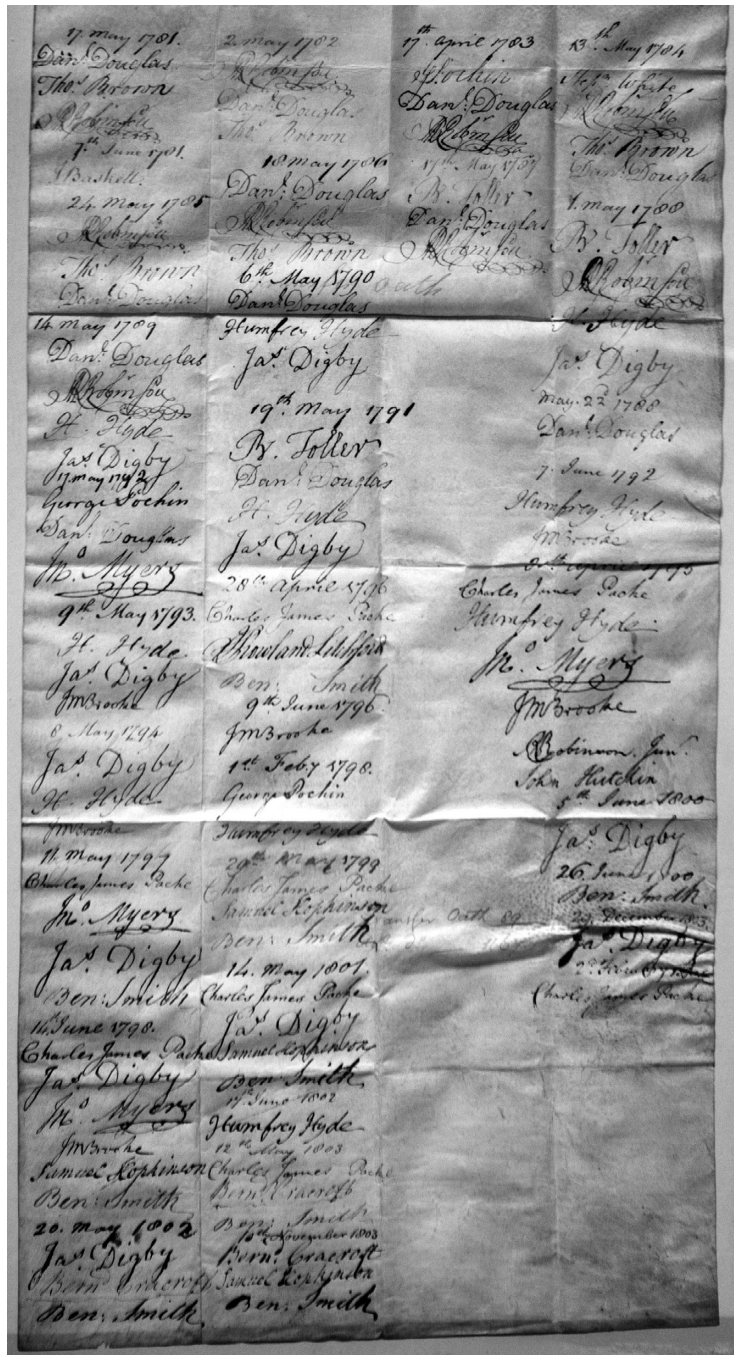 17. May 1781.
Danl. Douglas
Thos. Brown
Robinson
7th June 1781.
J Baskett.
24 May 1785
Robinson
Thos. Brown
Danl. Douglas
14 May 1789
Danl. Douglas
Robinson
H. Hyde
Jas. Digby
17 May 1792
George Pochin
Danl. Douglas
Jno. Myers
9th May 1793.
H. Hyde
Jas. Digby
JMBrooke
8 May 1794
Jas. Digby
H. Hyde
JMBrooke
11. May 1797
Charles James Packe
Jno. Myers
Jas. Digby
Ben: Smith
14. June 1798.
Charles James Packe
Jas. Digby
Jno. Myers
JMBrooke
Samuel Hopkinson
Ben: Smith
20. May 1802
Jas. Digby
Bernd. Cracroft
Ben: Smith
2 May 1782
Robinson
Danl. Douglas
Thos. Brown
18 May 1786
Danl. Douglas
Robinson
Thos. Brown
6th May 1790
Danl. Douglas
Humfrey Hyde
Jas. Digby
19th May 1791
Br. Toller
Danl. Douglas
H. Hyde
Jas. Digby
28th April 1796
Charles James Packe
Rowland Litchford
Ben: Smith
9th June 1796
JMBrooke
1st Feby 1798.
George Pochin
Humfrey Hyde
29th May 1799
Charles James Packe
Samuel Hopkinson
Ben: Smith
14. May 1801.
Charles James Packe
Jas. Digby
Samuel Hopkinson
Ben Smith
17th June 1802
Humfrey Hyde
12th May 1803
Charles James Packe
Bernd. Cracroft
Ben: Smith
10th November 1803
Bernd. Cracroft
Samuel Hopkinson
Ben: Smith
17th April 1783
Pochin
Danl. Douglas
Robinson
17th May 1787
Br. Toller
Danl. Douglas
Robinson
oath
Oath 89
13th May 1784
White
Robinson
Thos. Brown
Danl. Douglas
1. May 1788
Br. Toller
Robinson
H. Hyde
Jas. Digby
May. 22d 1788
Danl. Douglas
7. June 1792
Humfrey Hyde
JMBrooke
April 1795
Charles James Packe
Humfrey Hyde
Jno. Myers
JMBrooke
Robinson. Junr.
John Hutchin
5th June 1800
Jas. Digby
26. June 1800
Ben: Smith.
29. December 1813.
Jas. Digby
Charles James Packe